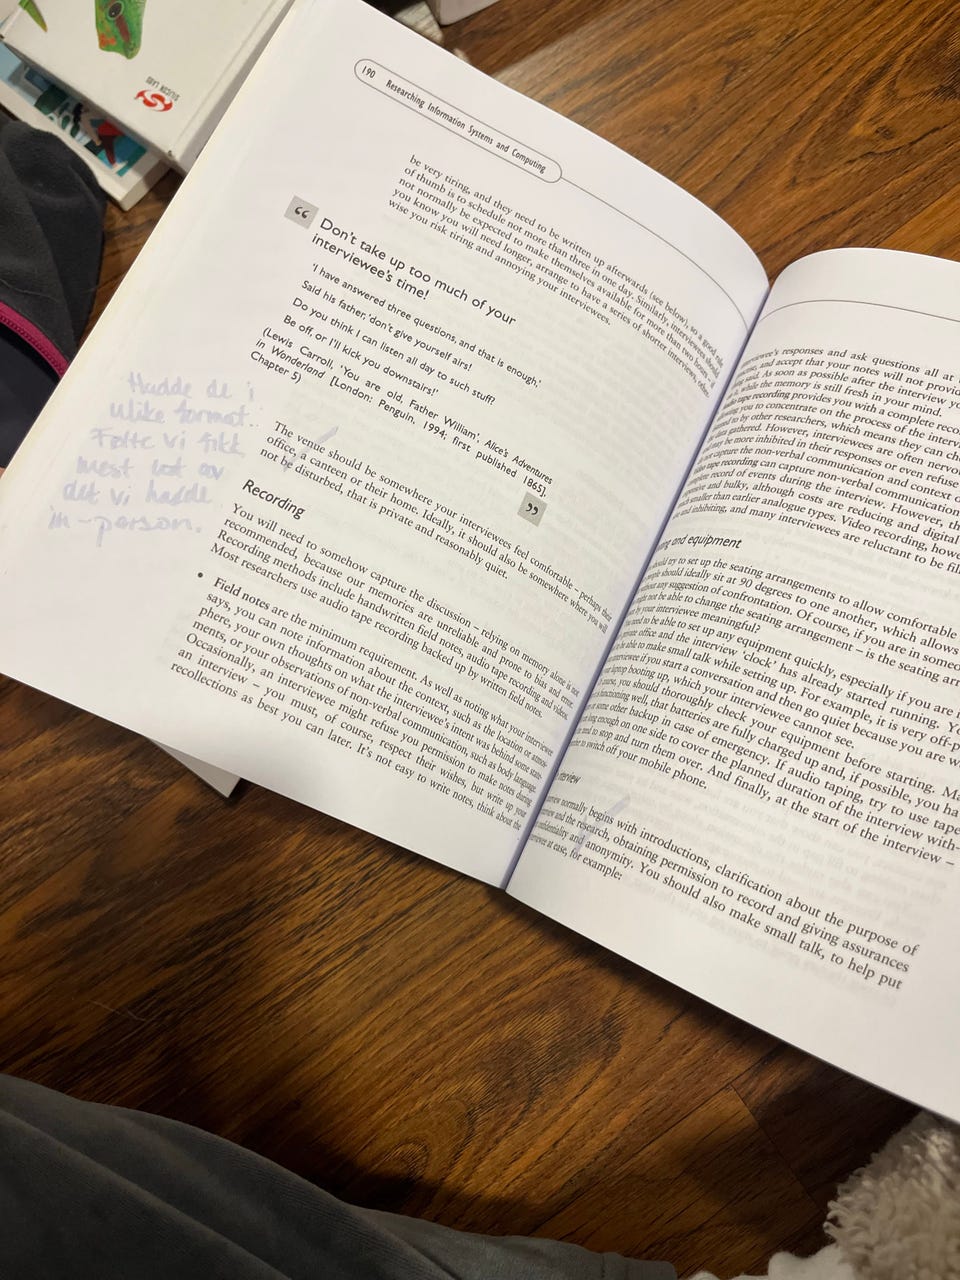 SUSCON LABS
190 Researching Information Systems and Computing
be very tiring, and they need to be written up afterwards (see below), so a good rule
of thumb is to schedule not more than three in one day. Similarly, interviewees should
not normally be expected to make themselves available for more than two hours – if
you know you will need longer, arrange to have a series of shorter interviews, other-
wise you risk tiring and annoying your interviewees.
“
Don't take up too much of your
interviewee's time!
'I have answered three questions, and that is enough,'
Said his father, 'don't give yourself airs!
Do you think I can listen all day to such stuff?
Be off, or I'll kick you downstairs!'
(Lewis Carroll, 'You are old, Father William', Alice's Adventures
in Wonderland [London: Penguin, 1994; first published 1865],
Chapter 5)
”
Hadde de i
ulike format.
Følte vi fikk
mest ut av
det vi hadde
in-person.
The venue should be somewhere your interviewees feel comfortable – perhaps their
office, a canteen or their home. Ideally, it should also be somewhere where you will
not be disturbed, that is private and reasonably quiet.
Recording
You will need to somehow capture the discussion – relying on memory alone is not
recommended, because our memories are unreliable and prone to bias and error.
Recording methods include handwritten field notes, audio tape recording and video.
Most researchers use audio tape recording backed up by written field notes.
• Field notes are the minimum requirement. As well as noting what your interviewee
says, you can note information about the context, such as the location or atmos-
phere, your own thoughts on what the interviewee's intent was behind some state-
ments, or your observations of non-verbal communication, such as body language.
Occasionally, an interviewee might refuse you permission to make notes during
an interview – you must, of course, respect their wishes, but write up your
recollections as best you can later. It's not easy to write notes, think about the
interviewee's responses and ask questions all at
accept that your notes will not provid
said. As soon as possible after the interview yo
while the memory is still fresh in your mind.
tape recording provides you with a complete recor
you to concentrate on the process of the interv
to by other researchers, which means they can ch
data gathered. However, interviewees are often nervou
may be more inhibited in their responses or even refuse
not capture the non-verbal communication and context o
tape recording can capture non-verbal communication
record of events during the interview. However, th
and bulky, although costs are reducing and digital
smaller than earlier analogue types. Video recording, howe
and inhibiting, and many interviewees are reluctant to be fil
and equipment
should try to set up the seating arrangements to allow comfortable
people should ideally sit at 90 degrees to one another, which allows
any suggestion of confrontation. Of course, if you are in someo
might not be able to change the seating arrangement – is the seating arr
by your interviewee meaningful?
need to be able to set up any equipment quickly, especially if you are i
private office and the interview 'clock' has already started running. Y
be able to make small talk while setting up. For example, it is very off-p
interviewee if you start a conversation and then go quiet because you are w
laptop booting up, which your interviewee cannot see.
course, you should thoroughly check your equipment before starting. Ma
functioning well, that batteries are fully charged up and, if possible, you ha
some other backup in case of emergency. If audio taping, try to use tape
long enough on one side to cover the planned duration of the interview with-
to stop and turn them over. And finally, at the start of the interview –
to switch off your mobile phone.
interview
normally begins with introductions, clarification about the purpose of
and the research, obtaining permission to record and giving assurances
confidentiality and anonymity. You should also make small talk, to help put
at ease, for example: